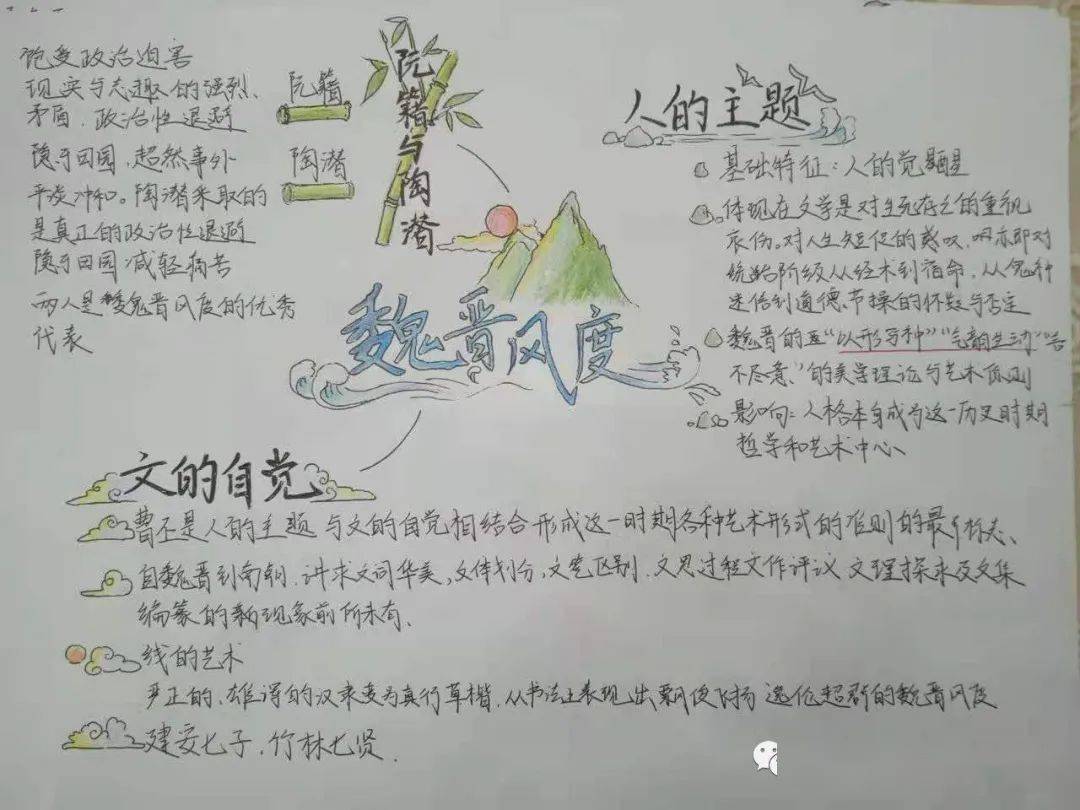 阮籍与陶潜
阮籍
饱受政治迫害
现实与志趣的强烈、
矛盾、政治性退避
陶潜
隐于田园,超然事外
平淡冲和。陶潜采取的
是真正的政治性退避
隐于田园 减轻痛苦
两人是魏晋风度的优秀
代表
魏晋风度
人的主题
基础特征:人的觉醒
体现在文学是对生死存亡的重视
哀伤。对人生短促的感叹。
统治阶级从经术到宿命,从鬼神
迷信到道德、节操的怀疑与否定
魏晋的"以形写神""气韵生动""言
不尽意"的美学理论与艺术原则
影响:人格本身成为这一历史时期
哲学和艺术中心
文的自觉
曹丕是人的主题 与文的自觉相结合 形成这一时期各种艺术形式的准则的最早标志、
自魏晋到南朝、讲求文词华美,文体划分,文笔区别,文思过程文作评议 文理探求及文集
编纂的新现象前所未有、
线的艺术
严正的、雄浑的汉隶变为真行草楷、从书法上表现出飘俊飞扬 逸伦超群的魏晋风度
建安七子,竹林七贤.